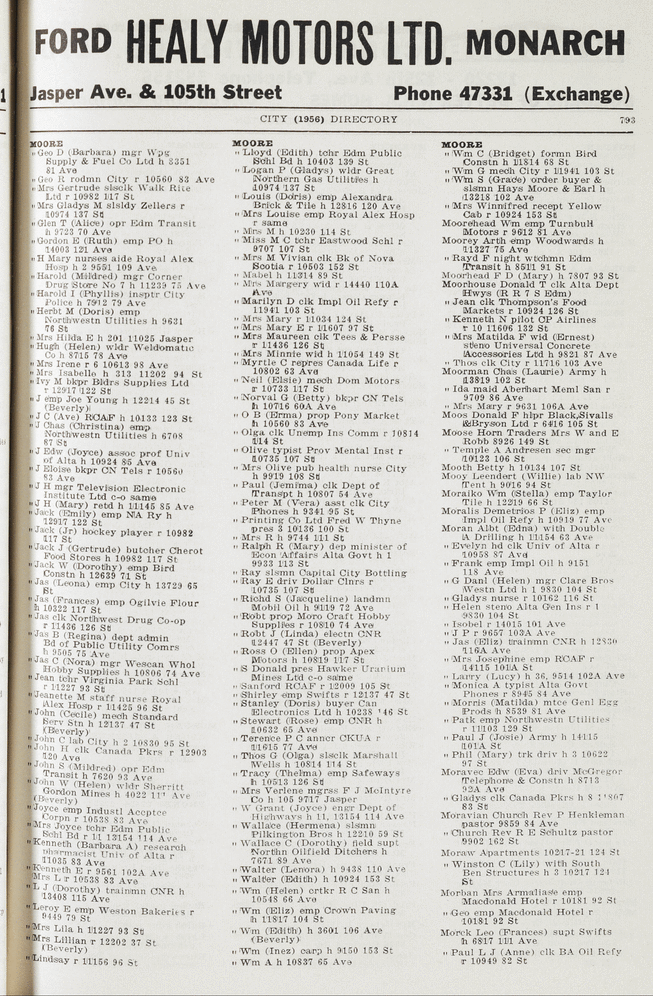 FORD HEALY MOTORS LTD. MONARCH
Jasper Ave. & 105th Street Phone 47331 (Exchange)
CITY (1956) DIRECTORY 793
MOORE
" Geo D (Barbara) mgr Wpg
Supply & Fuel Co Ltd h 3351
81 Ave
" Geo R rodmn City r 10560 83 Ave
" Mrs Gertrude slsclk Walk Rite
Ltd r 10982 117 St
" Mrs Gladys M slsldy Zellers r
10974 137 St
" Glen T (Alice) opr Edm Transit
h 9723 70 Ave
" Gordon E (Ruth) emp PO h
14003 121 Ave
" H Mary nurses aide Royal Alex
Hosp h 2 9551 109 Ave
" Harold (Mildred) mgr Corner
Drug Store No 7 h 11239 75 Ave
" Harold I (Phyllis) insptr City
Police h 7912 79 Ave
" Herbt M (Doris) emp
Northwestn Utilities h 9631
76 St
" Mrs Hilda E h 201 11025 Jasper
" Hugh (Helen) wldr Weldomatic
Co h 8715 78 Ave
" Mrs Irene r 6 10613 98 Ave
" Mrs Isabello h 313 11202 94 St
" Ivy M bkpr Bldrs Supplies Ltd
r 12917 122 St
" J emp Joe Young h 12214 45 St
(Beverly)
" J C (Ave) RCAF h 10133 123 St
" J Chas (Christina) emp
Northwestn Utilities h 6708
87 St
" J Edw (Joyce) assoc prof Univ
of Alta h 10924 85 Ave
" J Eloise bkpr CN Tels r 10560
83 Ave
" J H mgr Television Electronic
Institute Ltd c-o same
" J H (Mary) retd h 11145 85 Ave
" Jack (Emily) emp NA Ry h
12917 122 St
" Jack (Jr) hockey player r 10982
117 St
" Jack J (Gertrude) butcher Cherot
Food Stores h 10982 117 St
" Jack W (Dorothy) emp Bird
Constn h 12639 71 St
" Jas (Leona) emp City h 13729 65
St
" Jas (Frances) emp Ogilvie Flour
h 10322 117 St
" Jas clk Northwest Drug Co-op
r 11436 126 St
" Jas B (Regina) dept admin
Bd of Public Utility Comrs
h 9505 75 Ave
" Jas C (Nora) mgr Wescan Whol
Hobby Supplies h 10806 74 Ave
" Jean tchr Virginia Park Schl
r 11227 93 St
" Jeanette M staff nurse Royal
Alex Hosp r 11425 96 St
" John (Cecile) mech Standard
Serv Stn h 12137 47 St
(Beverly)
" John C lab City h 2 10830 95 St
" John H clk Canada Pkrs r 12903
120 Ave
" John S (Mildred) opr Edm
Transit h 7620 93 Ave
" John W (Helen) wldr Sherritt
Gordon Mines h 4022 111 Ave
(Beverly)
" Joyce emp Industl Accptce
Corpn r 10538 83 Ave
" Mrs Joyce tchr Edm Public
Schl Bd r 11 13154 114 Ave
" Kenneth (Barbara A) research
pharmacist Univ of Alta r
11035 83 Ave
" Kenneth E r 9561 102A Ave
" Mrs L r 10538 83 Ave
" L J (Dorothy) trainmn CNR h
13408 115 Ave
" Leroy E emp Weston Bakeries r
9449 79 St
" Mrs Lila h 11227 93 St
" Mrs Lillian r 12202 37 St
(Beverly)
" Lindsay r 11156 96 St
MOORE
" Lloyd (Edith) tchr Edm Public
Schl Bd h 10403 139 St
" Logan P (Gladys) wldr Great
Northern Gas Utilities h
10974 137 St
" Louis (Doris) emp Alexandra
Brick & Tile h 12816 120 Ave
" Mrs Louise emp Royal Alex Hosp
r same
" Mrs M h 10230 114 St
" Miss M C tchr Eastwood Schl r
9707 107 St
" Mrs M Vivian clk Bk of Nova
Scotia r 10503 152 St
" Mabel h 11314 89 St
" Mrs Margery wid r 14440 110A
Ave
" Marilyn D clk Impl Oil Refy r
11941 103 St
" Mrs Mary r 11034 124 St
" Mrs Mary E r 11607 97 St
" Mrs Maureen clk Tees & Persse
r 11436 126 St
" Mrs Minnie wid h 11054 149 St
" Myrtle C repres Canada Life r
10802 63 Ave
" Neil (Elsie) mech Dom Motors
r 10733 117 St
" Norval G (Betty) bkpr CN Tels
h 10716 60A Ave
" O B (Erma) prop Pony Market
h 10560 83 Ave
" Olga clk Unemp Ins Comm r 10814
114 St
" Olive typist Prov Mental Inst r
10735 107 St
" Mrs Olive pub health nurse City
h 9919 108 St
" Paul (Jemima) clk Dept of
Transpt h 10807 54 Ave
" Peter M (Vera) asst clk City
Phones h 9341 95 St
" Printing Co Ltd Fred W Thyne
pres 3 10136 100 St
" Mrs R h 9744 111 St
" Ralph R (Mary) dep minister of
Econ Affairs Alta Govt h 1
9933 113 St
" Ray slsmn Capital City Bottling
" Ray E driv Dollar Clnrs r
10735 107 St
" Richd S (Jacqueline) landmn
Mobil Oil h 9119 72 Ave
" Robt prop Moro Craft Hobby
Supplies r 10810 74 Ave
" Robt J (Linda) electn CNR
12447 47 St (Beverly)
" Ross O (Ellen) prop Apex
Motors h 10819 117 St
" S Donald pres Hawker Uranium
Mines Ltd c-o same
" Sanford RCAF r 12009 105 St
" Shirley emp Swifts r 12137 47 St
" Stanley (Doris) buyer Can
Electronics Ltd h 10238 146 St
" Stewart (Rose) emp CNR h
10632 65 Ave
" Terence P C anncr CKUA r
11615 77 Ave
" Thos G (Olga) slsclk Marshall
Wells h 10814 114 St
" Tracy (Thelma) emp Safeways
h 10513 126 St
" Mrs Verlene mgrss F J McIntyre
Co h 105 9717 Jasper
" W Grant (Joyce) engr Dept of
Highways h 11, 13154 114 Ave
" Wallace (Hermena) slsmn
Pilkington Bros h 12210 59 St
" Wallace C (Dorothy) field supt
Northn Oilfield Ditchers h
7671 89 Ave
" Walter (Lenora) h 9438 110 Ave
" Walter (Edith) h 10924 153 St
" Wm (Helen) crtkr R C San h
10548 66 Ave
" Wm (Eliz) emp Crown Paving
h 11817 104 St
" Wm (Edith) h 3601 106 Ave
(Beverly)
" Wm (Inez) carp h 9150 153 St
" Wm A h 10837 65 Ave
MOORE
" Wm C (Bridget) formn Bird
Constn h 11814 68 St
" Wm G mech City r 11941 103 St
" Wm S (Grace) order buyer &
slsmn Hays Moore & Earl h
13218 102 Ave
" Mrs Winnifred recept Yellow
Cab r 10924 153 St
Moorehead Wm emp Turnbull
Motors r 9612 81 Ave
Moorey Arth emp Woodwards h
11327 75 Ave
" Rayd F night wtchmn Edm
Transit h 8511 91 St
Moorhead F D (Mary) h 7807 93 St
Moorhouse Donald T clk Alta Dept
Hwys (R R 7 S Edm)
" Jean clk Thompson's Food
Markets r 10924 126 St
" Kenneth N pilot CP Airlines
r 10 11606 132 St
" Mrs Matilda F wid (Ernest)
steno Universal Concrete
Accessories Ltd h 9821 87 Ave
" Thos clk City r 11716 103 Ave
Moorman Chas (Laurie) Army h
13819 102 St
" Ida maid Aberhart Meml San r
9709 86 Ave
" Mrs Mary r 9631 106A Ave
Moos Donald F hlpr Black,Sivalls
&Bryson Ltd r 6416 105 St
Moose Horn Traders Mrs W and E
Robb 8926 149 St
" Temple A Andresen sec mgr
10123 106 St
Mooth Betty h 10134 107 St
Mooy Leendert (Willie) lab NW
Tent h 9016 94 St
Moraiko Wm (Stella) emp Taylor
Tile h 12219 66 St
Moralis Demetrios P (Eliz) emp
Impl Oil Refy h 10919 77 Ave
Moran Albt (Edna) with Double
A Drilling h 11154 63 Ave
" Evelyn hd clk Univ of Alta r
10958 87 Ave
" Frank emp Impl Oil h 9151
118 Ave
" G Danl (Helen) mgr Clare Bros
Westn Ltd h 1 9830 104 St
" Gladys nurse r 10162 116 St
" Helen steno Alta Gen Ins r 1
9830 104 St
" Isobel r 14015 101 Ave
" J P r 9657 102A Ave
" Jas (Eliz) trainmn CNR h 12830
116A Ave
" Mrs Josephine emp RCAF r
14115 101A St
" Larry (Lucy) h 36, 9514 102A Ave
" Monica A typist Alta Govt
Phones r 8945 84 Ave
" Morris (Matilda) mtce Genl Egg
Prods h 8539 81 Ave
" Patk emp Northwestn Utilities
r 11103 129 St
" Paul J (Josie) Army h 14115
101A St
" Phil (Mary) trk driv h 3 10622
97 St
Moravec Edw (Eva) driv McGregor
Telephone & Constn h 8713
92A Ave
" Gladys clk Canada Pkrs h 8 11807
83 St
Moravian Church Rev P Henkleman
pastor 9859 84 Ave
" Church Rev R E Schultz pastor
9902 162 St
Moraw Apartments 10217-21 124 St
" Winston C (Lily) with South
Ben Structures h 3 10217 124
St
Morban Mrs Armaliase emp
Macdonald Hotel r 10181 92 St
" Geo emp Macdonald Hotel r
10181 92 St
Morck Leo (Frances) supt Swifts
h 6817 111 Ave
" Paul L J (Anne) clk BA Oil Refy
r 10949 82 St